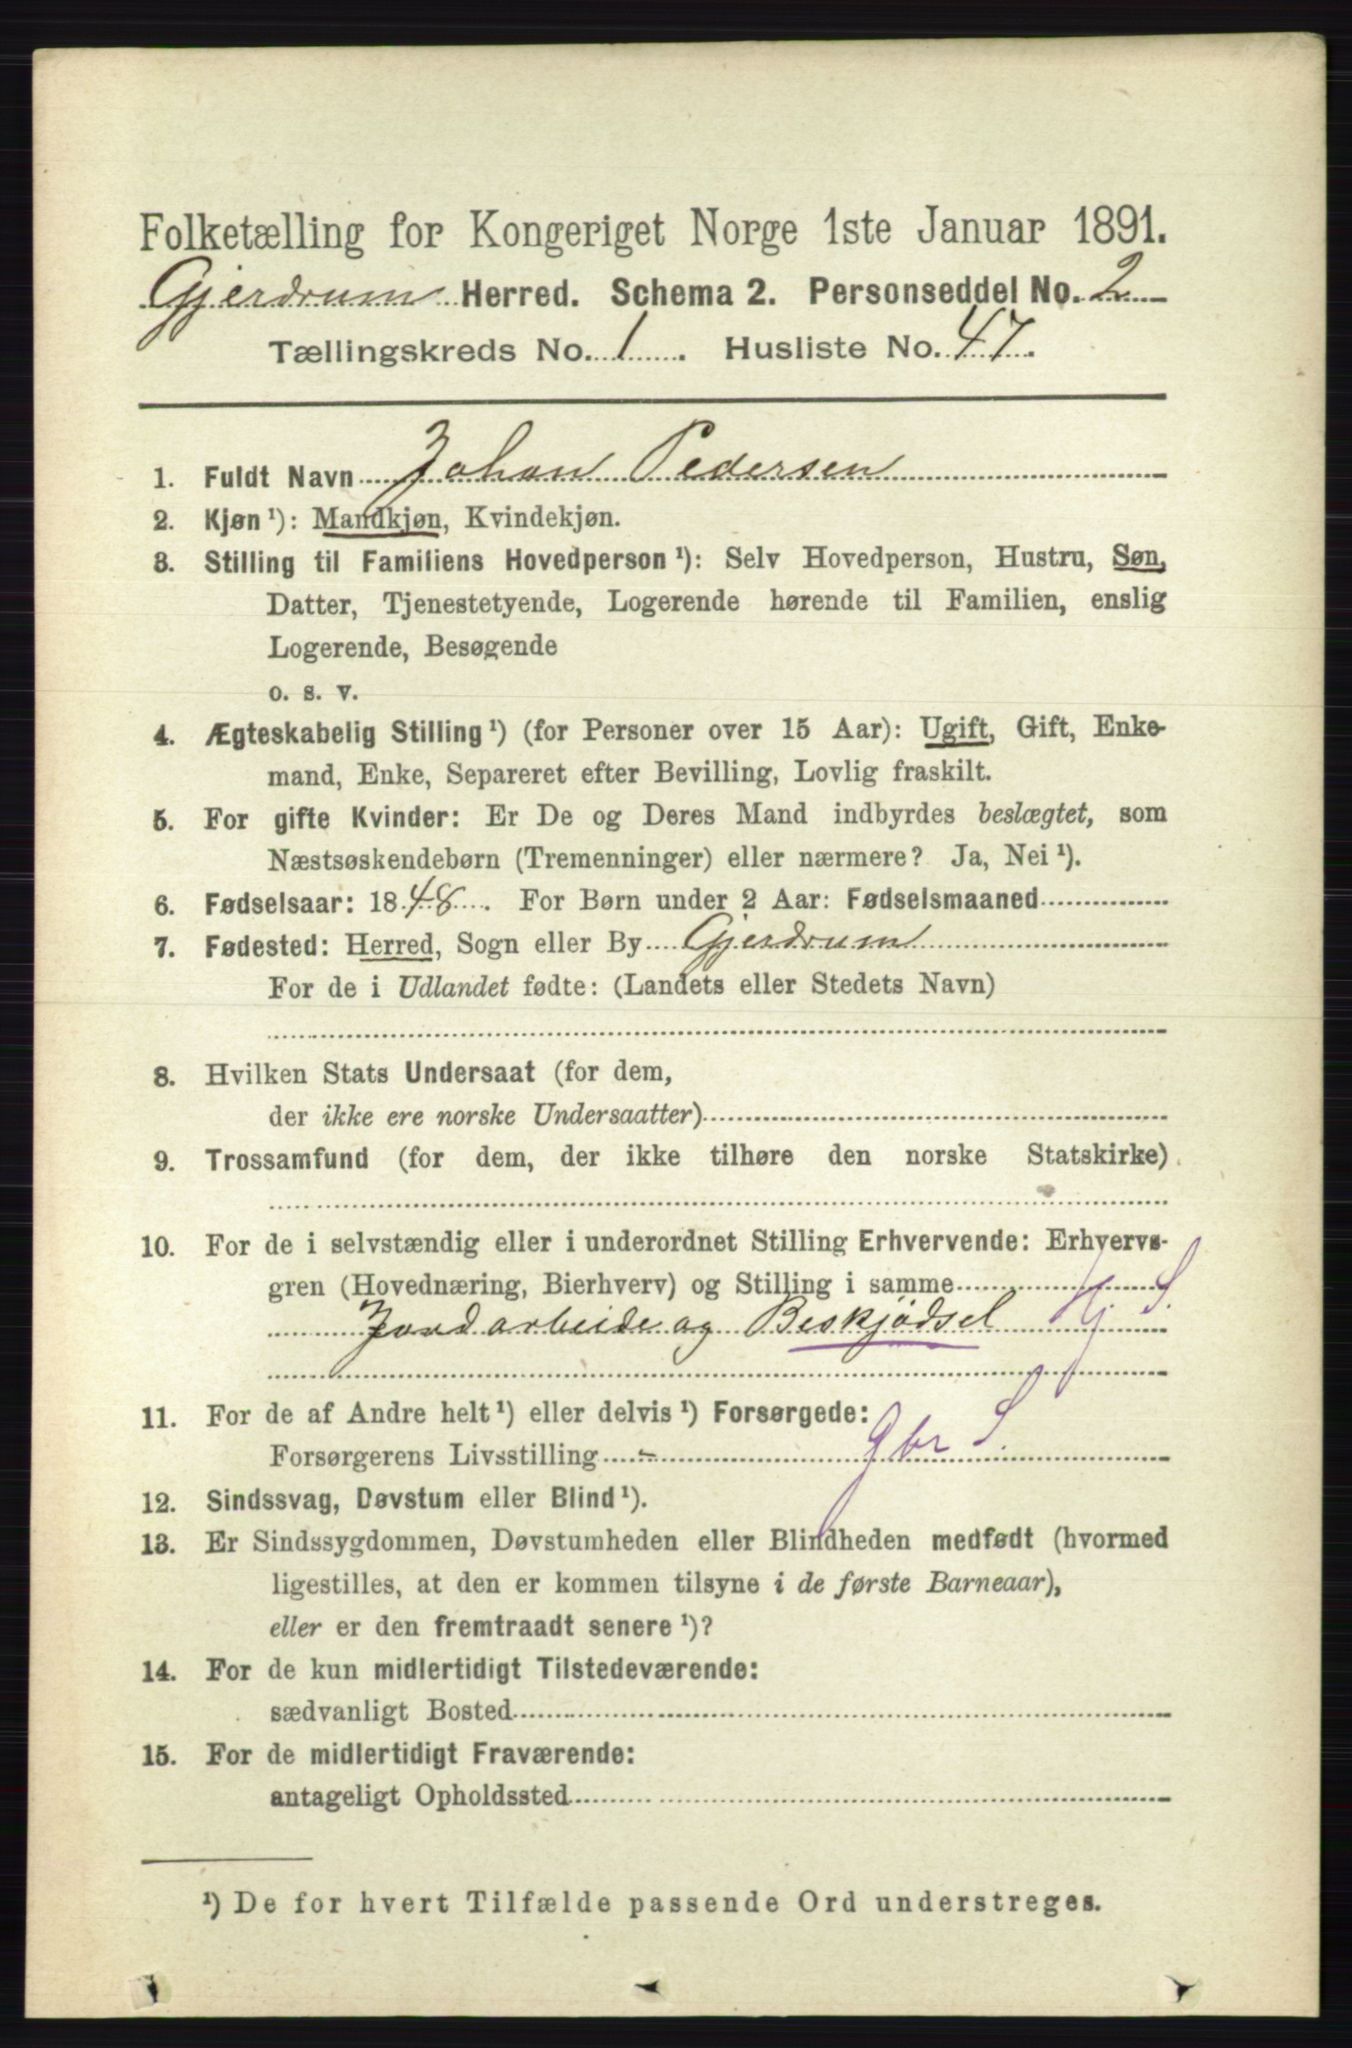 Folketælling for Kongeriget Norge 1ste Januar 1891.
Gjerdrum Herred. Schema 2. Personseddel No. 2
Tællingskreds No. 1. Husliste No. 47.
1. Fuldt Navn Johan Pedersen
2. Kjøn ¹): Mandkjøn, Kvindekjøn.
3. Stilling til Familiens Hovedperson ¹): Selv Hovedperson, Hustru, Søn,
Datter, Tjenestetyende, Logerende hørende til Familien, enslig
Logerende, Besøgende
o. s. v.
4. Ægteskabelig Stilling ¹) (for Personer over 15 Aar): Ugift, Gift, Enke-
mand, Enke, Separeret efter Bevilling, Lovlig fraskilt.
5. For gifte Kvinder: Er De og Deres Mand indbyrdes beslægtet, som
Næstsøskendebørn (Tremenninger) eller nærmere? Ja, Nei ¹).
6. Fødselsaar: 1848. For Børn under 2 Aar: Fødselsmaaned
7. Fødested: Herred, Sogn eller By Gjerdrum
For de i Udlandet fødte: (Landets eller Stedets Navn)
8. Hvilken Stats Undersaat (for dem,
der ikke ere norske Undersaatter)
9. Trossamfund (for dem, der ikke tilhøre den norske Statskirke)
10. For de i selvstændig eller i underordnet Stilling Erhvervende: Erhvervs-
gren (Hovednæring, Bierhverv) og Stilling i samme
Jordarbeide og Beskjødsel Hj. S.
11. For de af Andre helt ¹) eller delvis ¹) Forsørgede:
Forsørgerens Livsstilling - gbr S.
12. Sindssvag, Døvstum eller Blind ¹).
13. Er Sindssygdommen, Døvstumheden eller Blindheden medfødt (hvormed
ligestilles, at den er kommen tilsyne i de første Barneaar),
eller er den fremtraadt senere ¹)?
14. For de kun midlertidigt Tilstedeværende:
sædvanligt Bosted
15. For de midlertidigt Fraværende:
antageligt Opholdssted
¹) De for hvert Tilfælde passende Ord understreges.